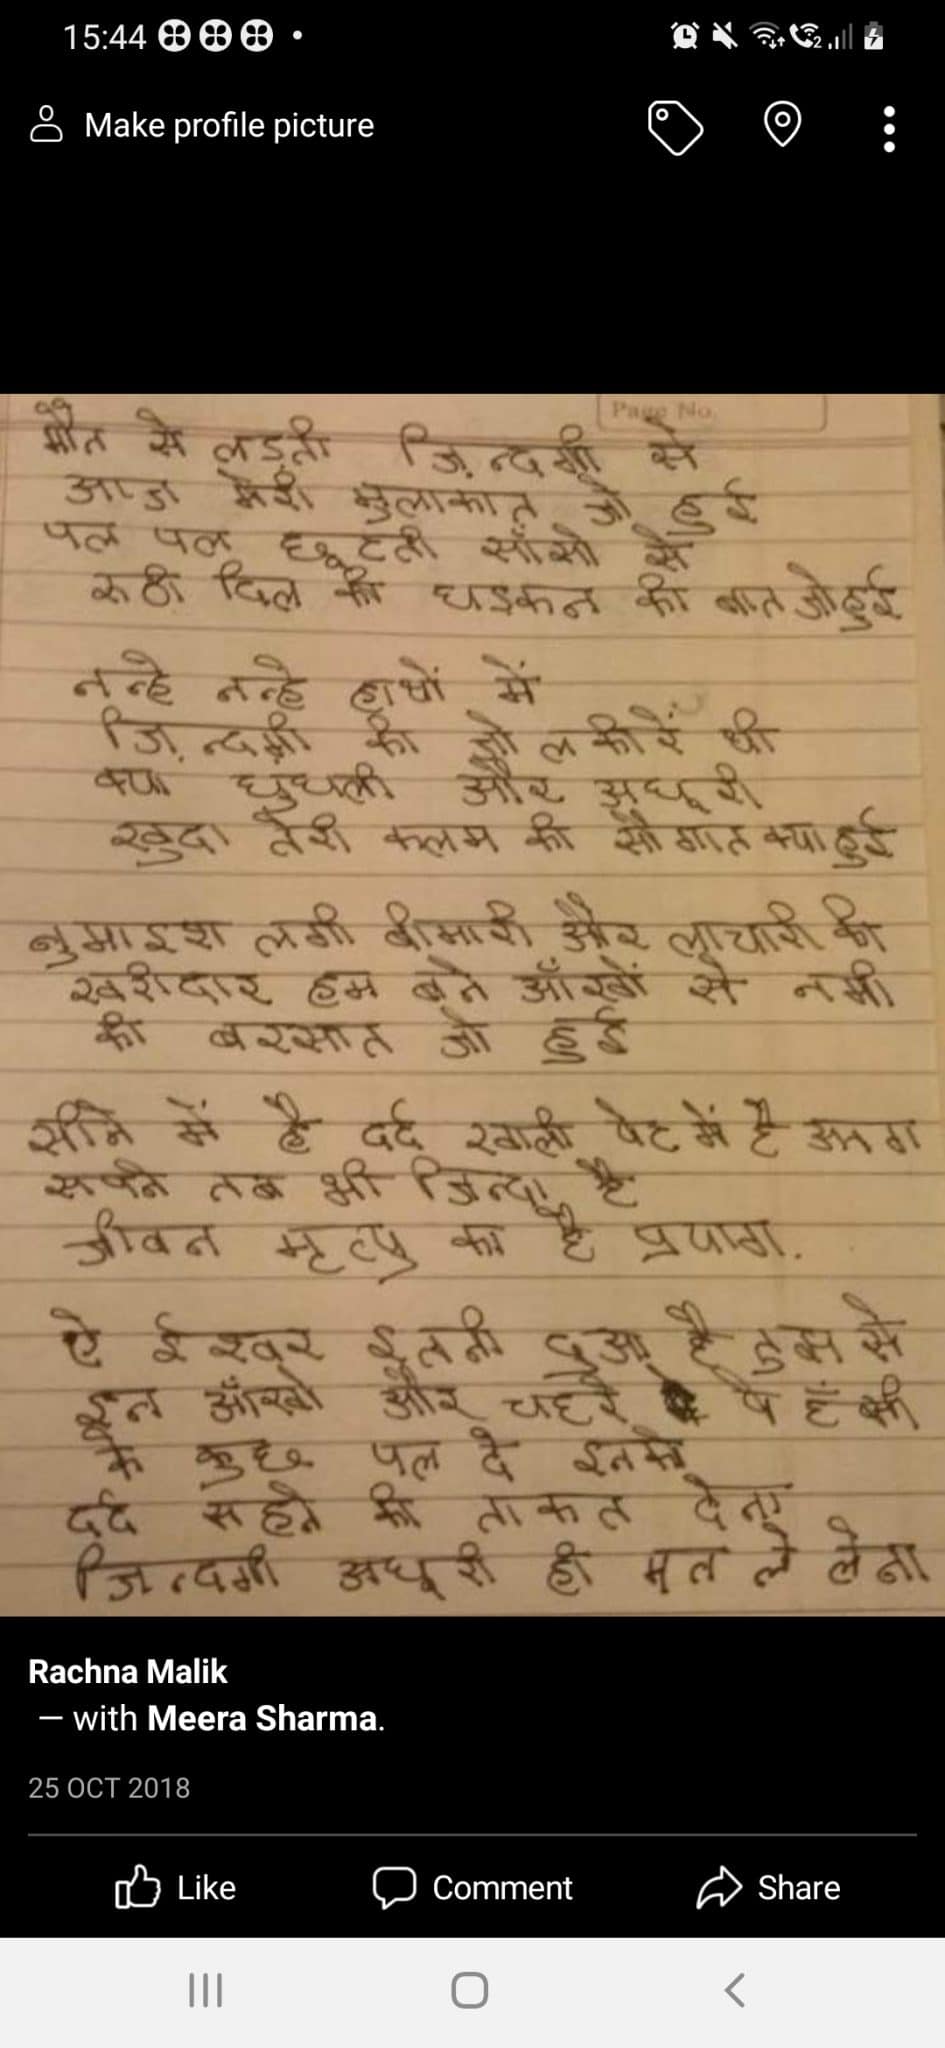 15:44
Make profile picture
Page No.
मौत से लड़ती ज़िन्दगी से
आज मेरी मुलाकात जो हुई
पल पल छूटती साँसो से
रुठी दिल की धडकन की बात जो हुई
नन्हे नन्हे हाथों में
ज़िन्दगी की जो लकीरें थी
क्या धुधली और अधूरी
खुदा तेरी कलम की सौगात क्या हुई
नुमाइश लगी बीमारी और लाचारी की
खरीदार हम बने आँखों से नमी
की बरसात जो हुई
सीने में है दर्द खाली पेट में है आग
सपने तब भी जिन्दा है
जीवन मृत्यु का है प्रयाग.
ऐ ईश्वर इतनी दुआ है तुम से
इन आँखो और चहरे पे हँसी
के कुछ पल दे इनके
दर्द सहने की ताकत देना
जिन्दगी अधूरी ही मत ले लेना
Rachna Malik
— with Meera Sharma.
25 OCT 2018
Like Comment Share